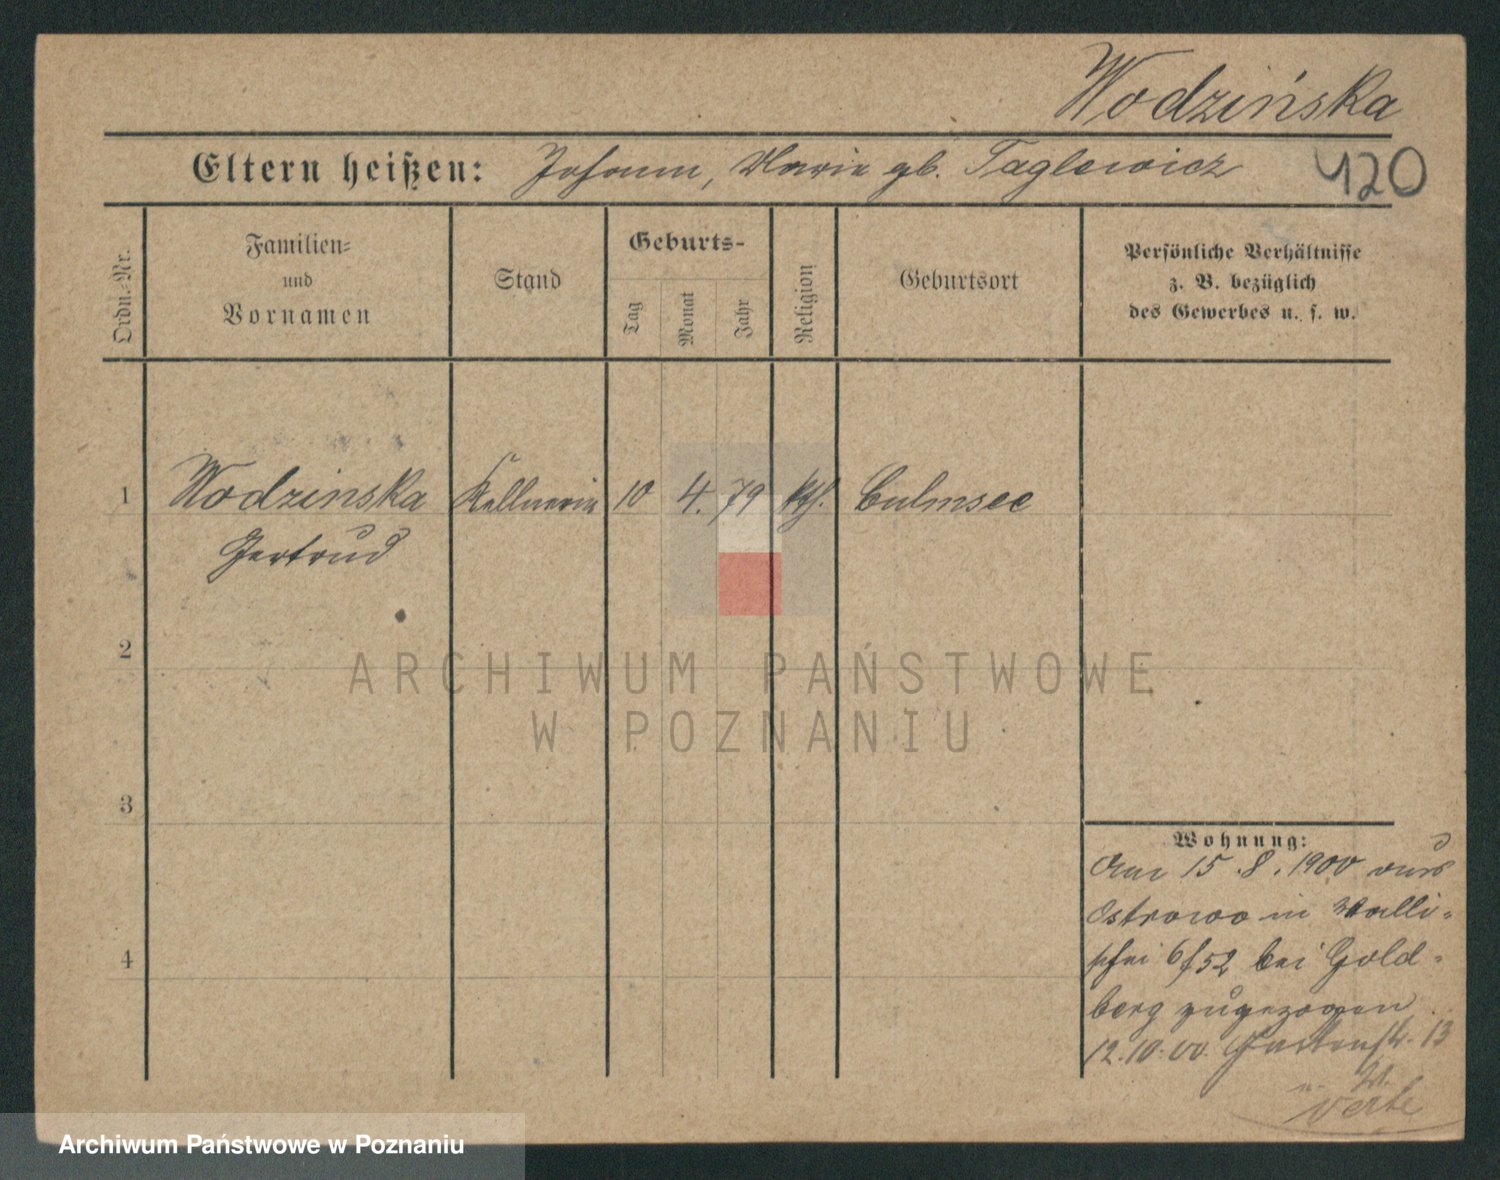 Wodzińska
Eltern heißen: Johann, Marie gb. Taglewicz
420
Ordn.-Nr.
Familien-
und
Vornamen
Stand
Geburts-
Tag
Monat
Jahr
Religion
Geburtsort
Persönliche Verhältnisse
z. B. bezüglich
des Gewerbes u. s. w.
1 Wodzinska Kellnerin 10 4. 79 kth. Culmsee
Gertrud
2
3
4
Wohnung:
Am 15.8.1900 aus
Ostrowo in Walli-
schei 6/52 bei Gold-
berg zugezogen
12.10.00. Gartenstr. 13
ARCHIWUM PAŃSTWOWE
W POZNANIU
Archiwum Państwowe w Poznaniu